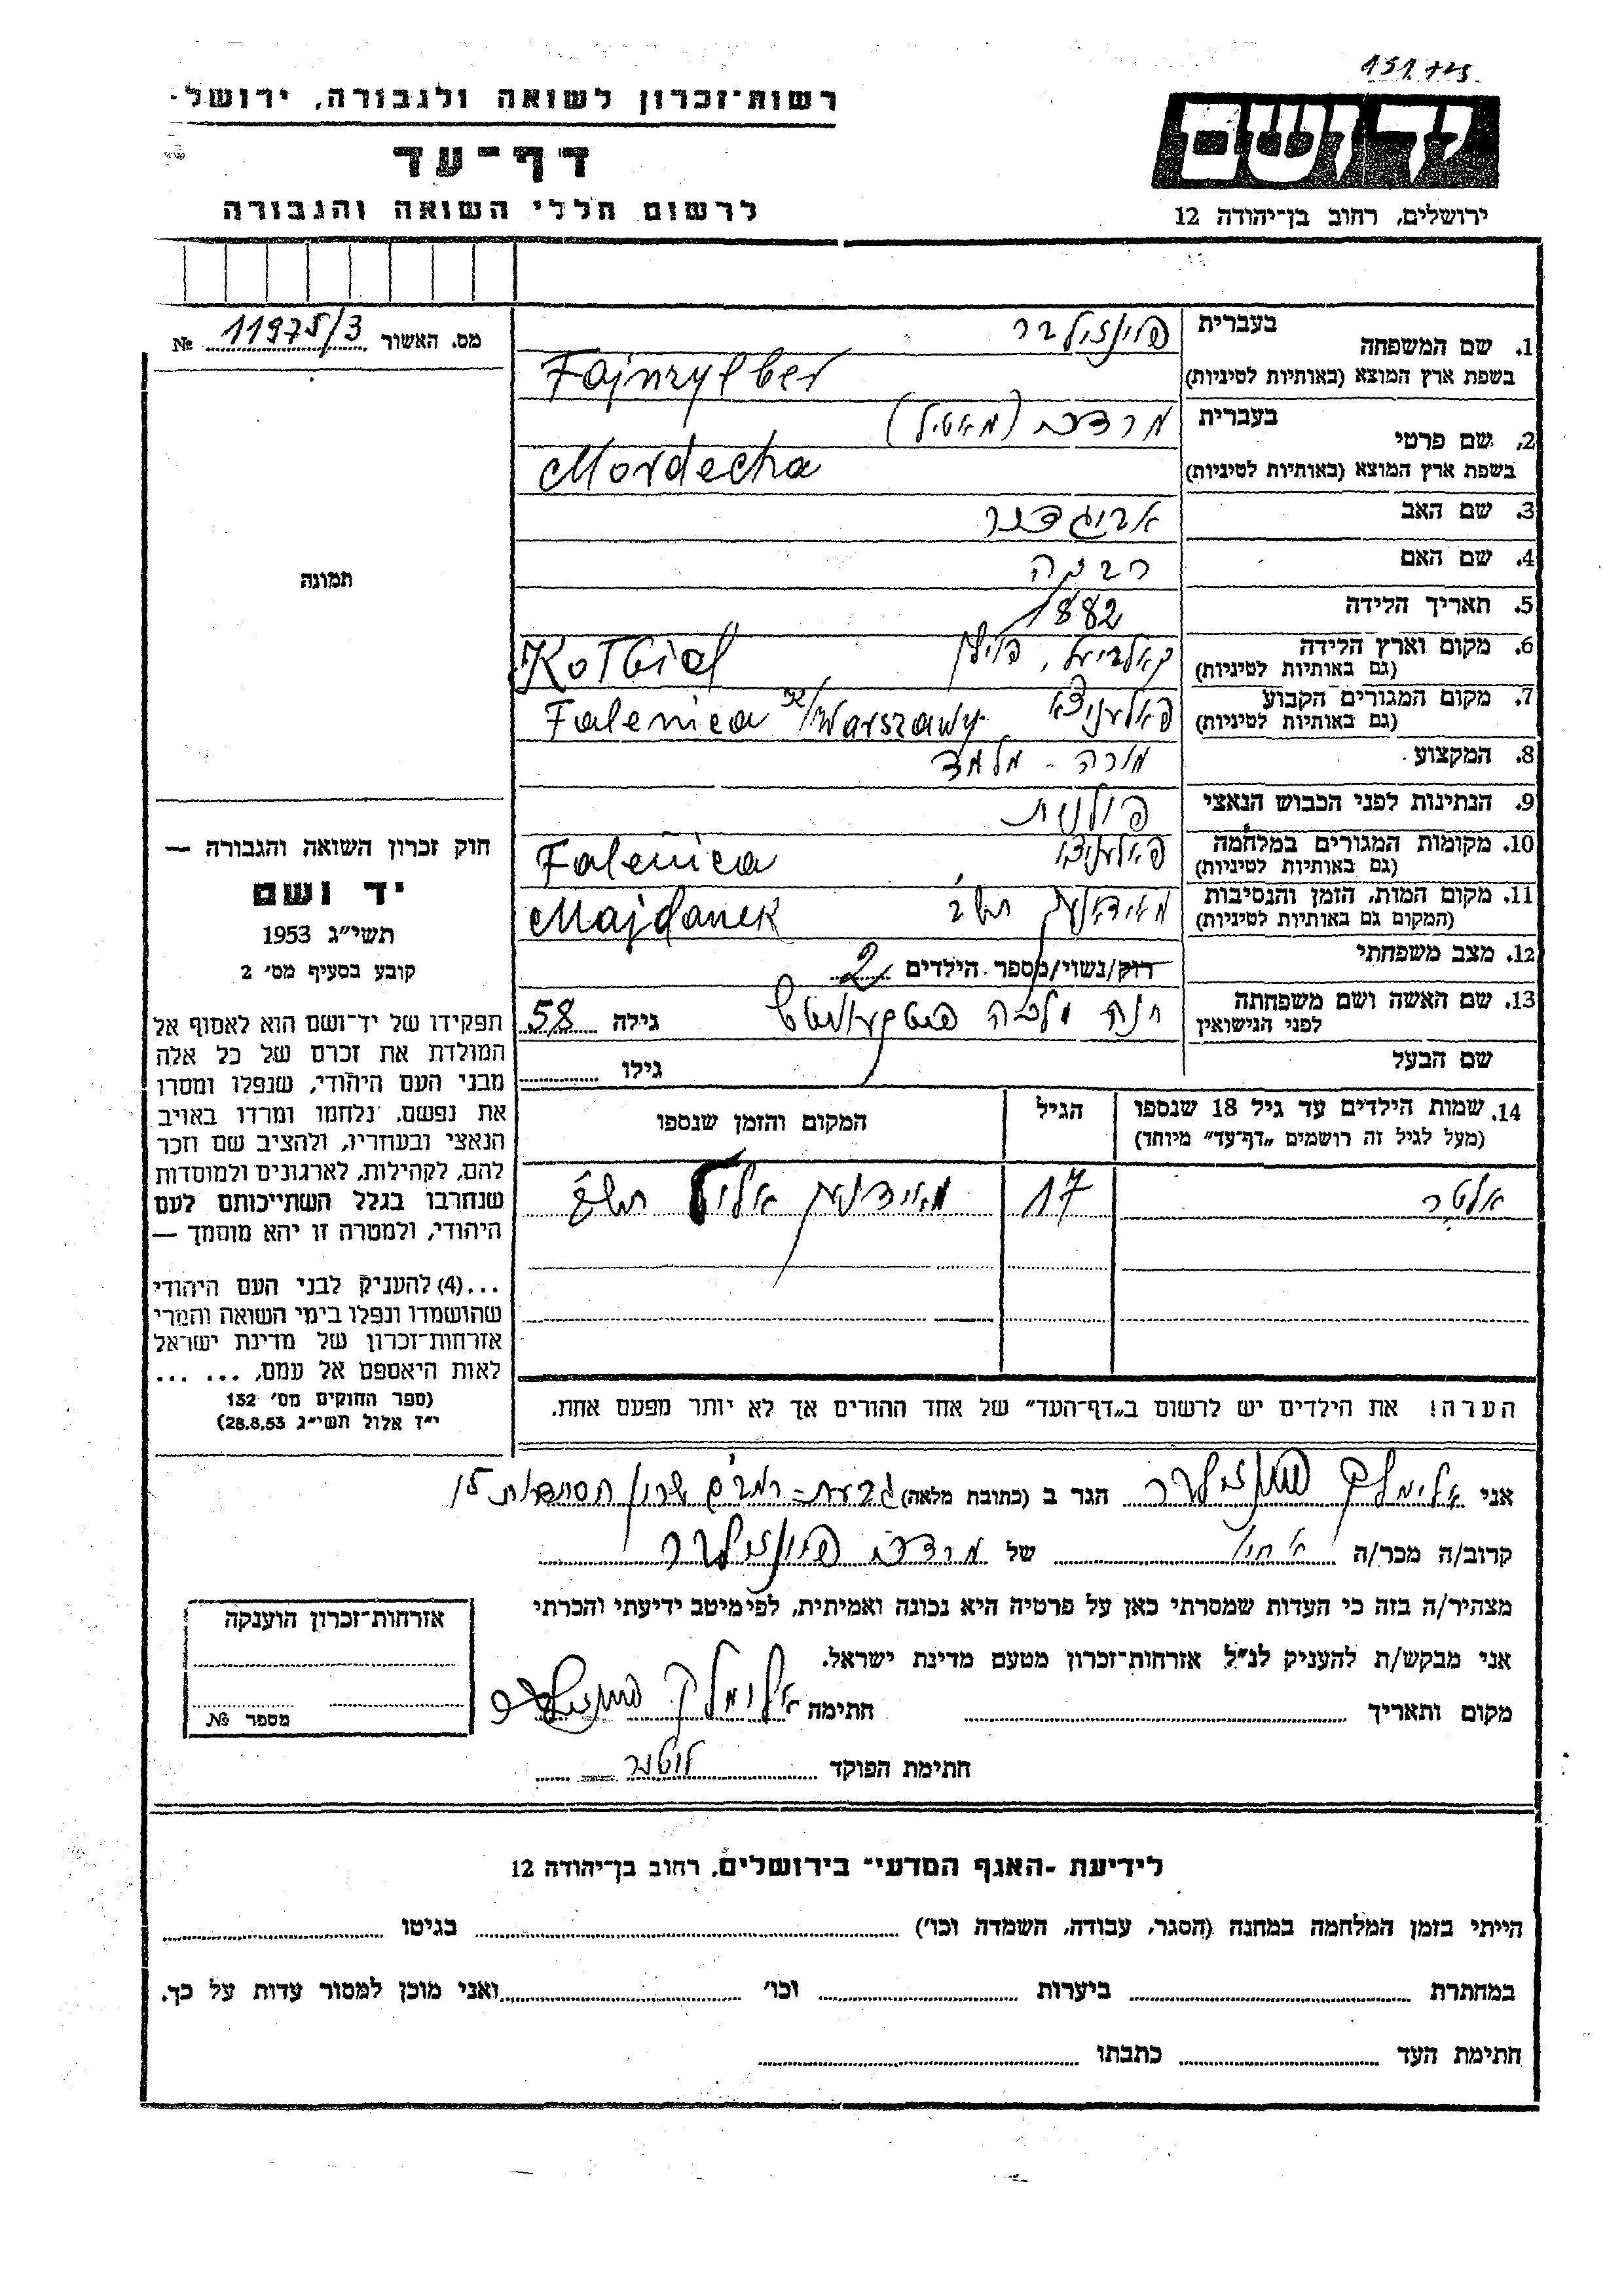 רשות־זכרון לשואה ולגבורה, ירושל
דף־עד
לרשום חללי השואה והגבורה
יד ושם
ירושלים, רחוב בן־יהודה 12
מס. האשור 11975/3 №
תמונה
חוק זכרון השואה והגבורה —
יד ושם
תשי״ג 1953
קובע בסעיף מס׳ 2
תפקידו של יד־ושם הוא לאסוף אל
המולדת את זכרם של כל אלה
מבני העם היהודי, שנפלו ומסרו
את נפשם, נלחמו ומרדו באויב
הנאצי ובעוזריו, ולהציב שם וזכר
להם, לקהילות, לארגונים ולמוסדות
שנחרבו בגלל השתייכותם לעם
היהודי, ולמטרה זו יהא מוסמך —
...(4) להעניק לבני העם היהודי
שהושמדו ונפלו בימי השואה והמרי
אזרחות־זכרון של מדינת ישראל
לאות היאספם אל עמם, ... ...
(ספר החוקים מס׳ 132
י״ז אלול תשי״ג 28.8.53)
1. שם המשפחה בעברית פיינזילבר
בשפת ארץ המוצא (באותיות לטיניות) Fajnzylber
2. שם פרטי בעברית מרדכי
בשפת ארץ המוצא (באותיות לטיניות) Mordecha
3. שם האב אביגדור
4. שם האם רבקה
5. תאריך הלידה 1882
6. מקום וארץ הלידה קאלביעל, פולין
(גם באותיות לטיניות) Kołbiel
7. מקום המגורים הקבוע פאלעניצא
(גם באותיות לטיניות) Falenica Warszawy
8. המקצוע מורה - מלמד
9. הנתינות לפני הכבוש הנאצי פולנית
10. מקומות המגורים במלחמה פאלעניצא
(גם באותיות לטיניות) Falenica
11. מקום המות, הזמן והנסיבות
(המקום גם באותיות לטיניות) Majdanek
12. מצב משפחתי רוק/נשוי/מספר הילדים 2
13. שם האשה ושם משפחתה חנה מלכה
לפני הנישואין גילה 58
שם הבעל גילו
14. שמות הילדים עד גיל 18 שנספו הגיל המקום והזמן שנספו
(מעל לגיל זה רושמים „דף־עד״ מיוחד)
אלטר 17
הערה! את הילדים יש לרשום ב„דף־העד״ של אחד ההורים אך לא יותר מפעם אחת.
אני אלימלך פיינזילבר הגר ב (כתובת מלאה) גבעת-רמב״ם
קרוב/ה מכר/ה אחיו של מרדכי פיינזילבר
מצהיר/ה בזה כי העדות שמסרתי כאן על פרטיה היא נכונה ואמיתית, לפי מיטב ידיעתי והכרתי
אני מבקש/ת להעניק לנ״ל אזרחות־זכרון מטעם מדינת ישראל.
מקום ותאריך חתימה אלימלך פיינזילבר
חתימת הפוקד
אזרחות־זכרון הוענקה
מספר №
לידיעת ״האגף המדעי״ בירושלים, רחוב בן־יהודה 12
הייתי בזמן המלחמה במחנה (הסגר, עבודה, השמדה וכו׳) בגיטו
במחתרת ביערות וכו׳ ואני מוכן למסור עדות על כך.
חתימת העד כתבתו